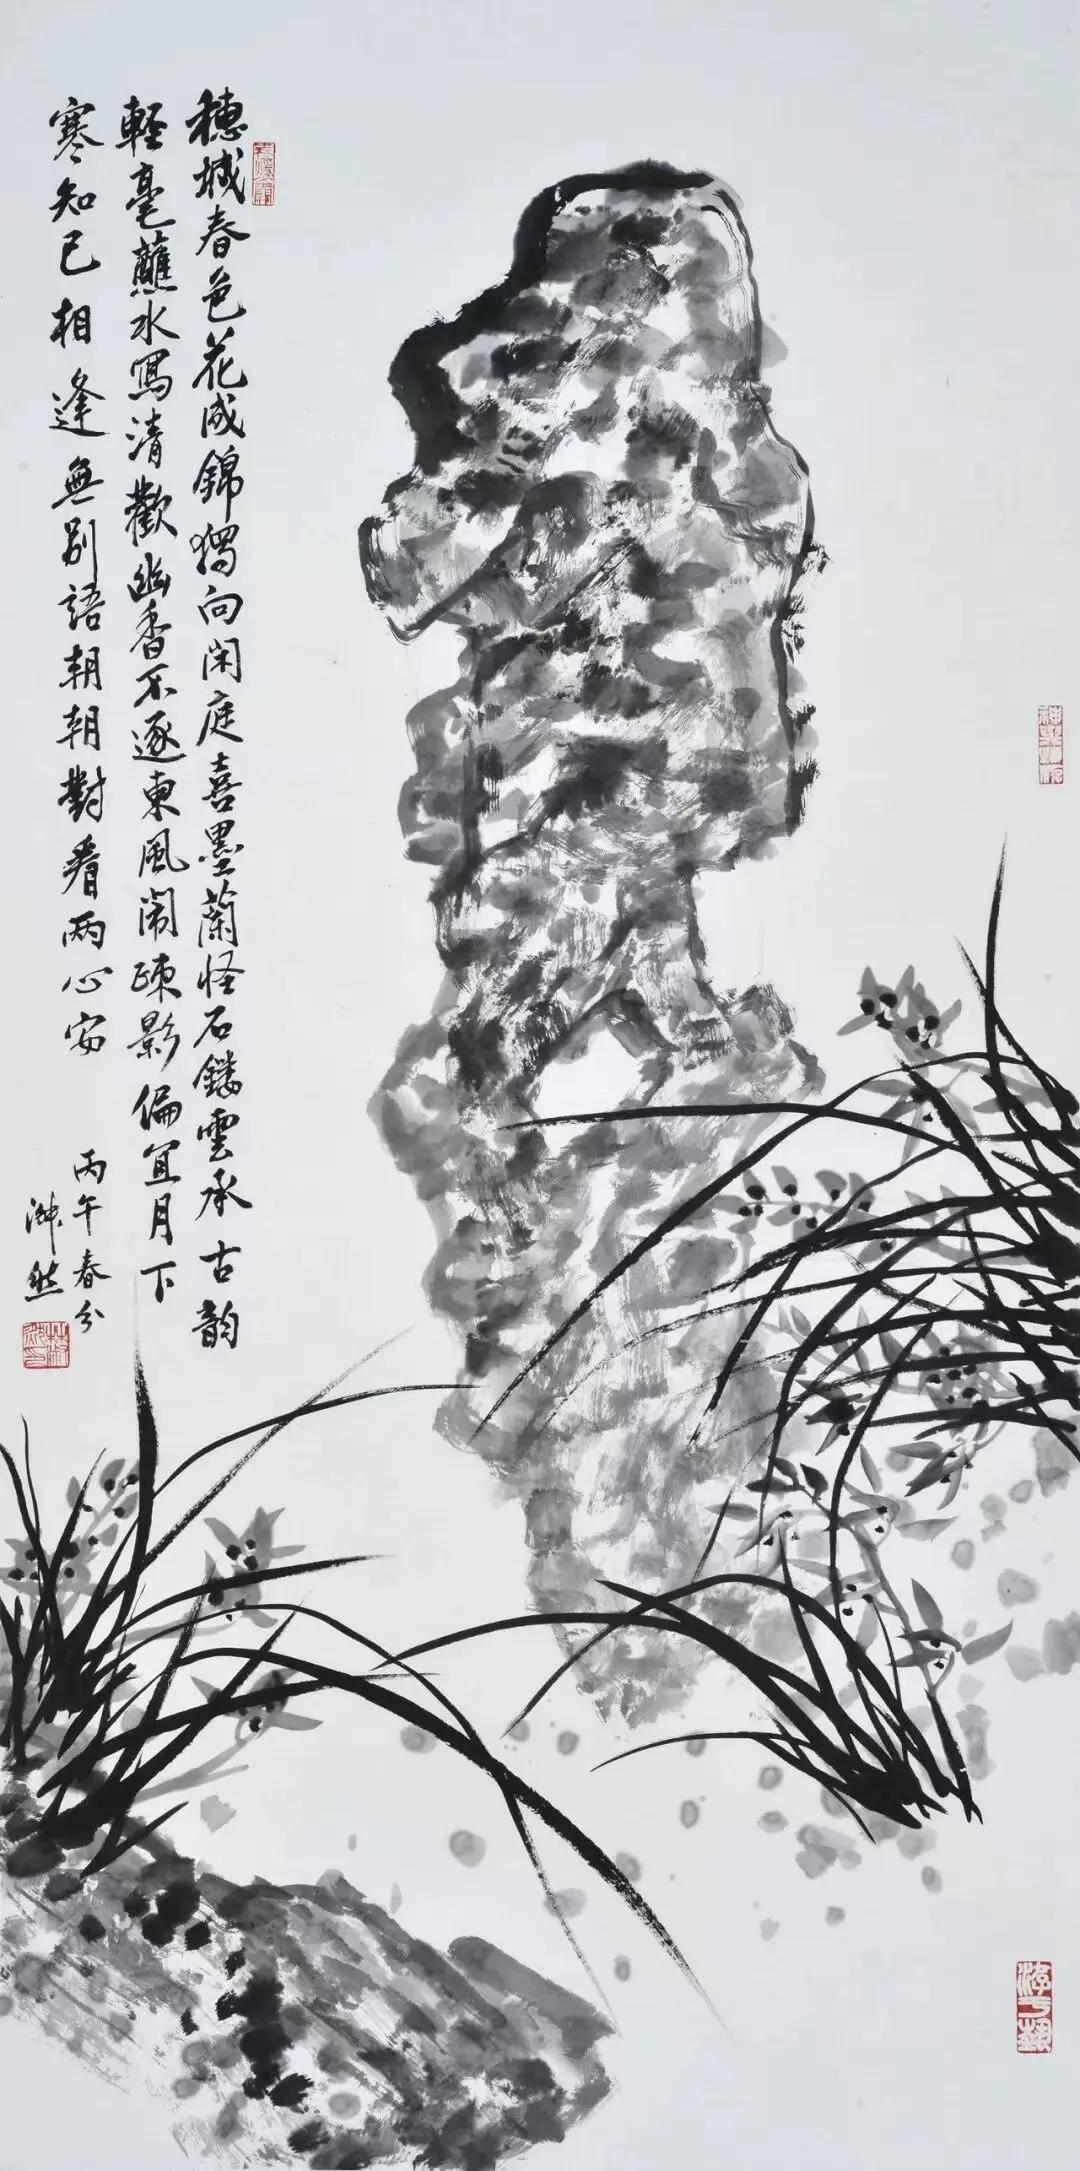 穗城春色花成錦獨向閑庭喜墨蘭怪石鏤雲承古韵
輕毫蘸水寫清歡幽香不逐東風鬧疎影偏宜月下
寒知己相逢無別語朝朝對看兩心安
丙午春分
然
游于藝